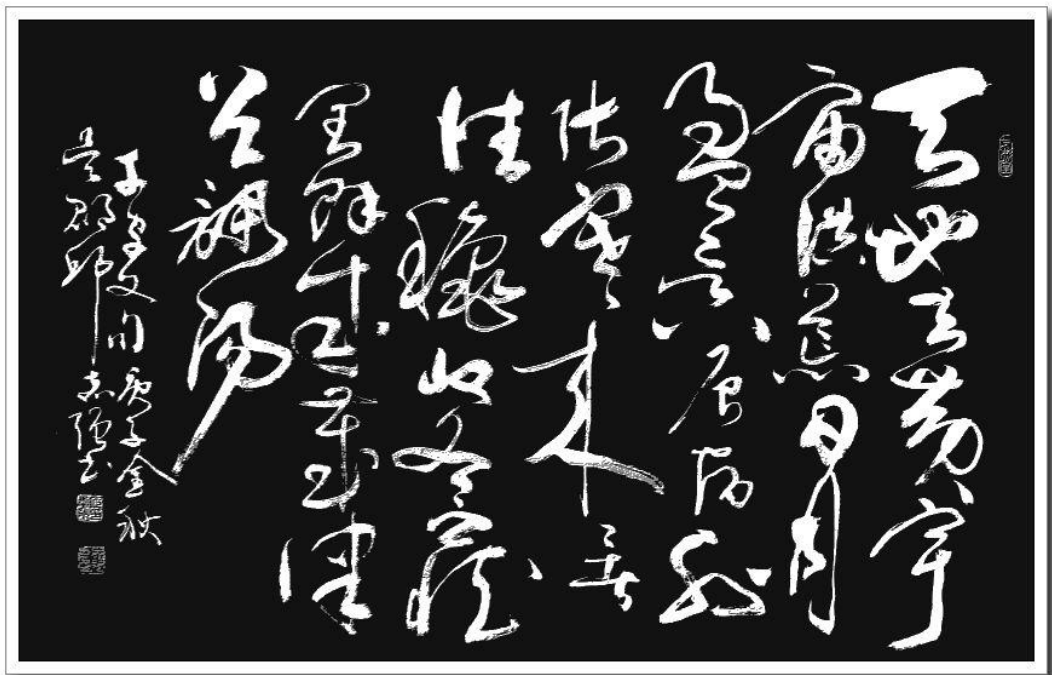 天地玄黄宇
宙洪荒日月
盈昃辰宿列
张寒来暑
往秋收冬藏
闰余成岁律
吕调阳
千字文句庚子金秋
吴郡邱志强书